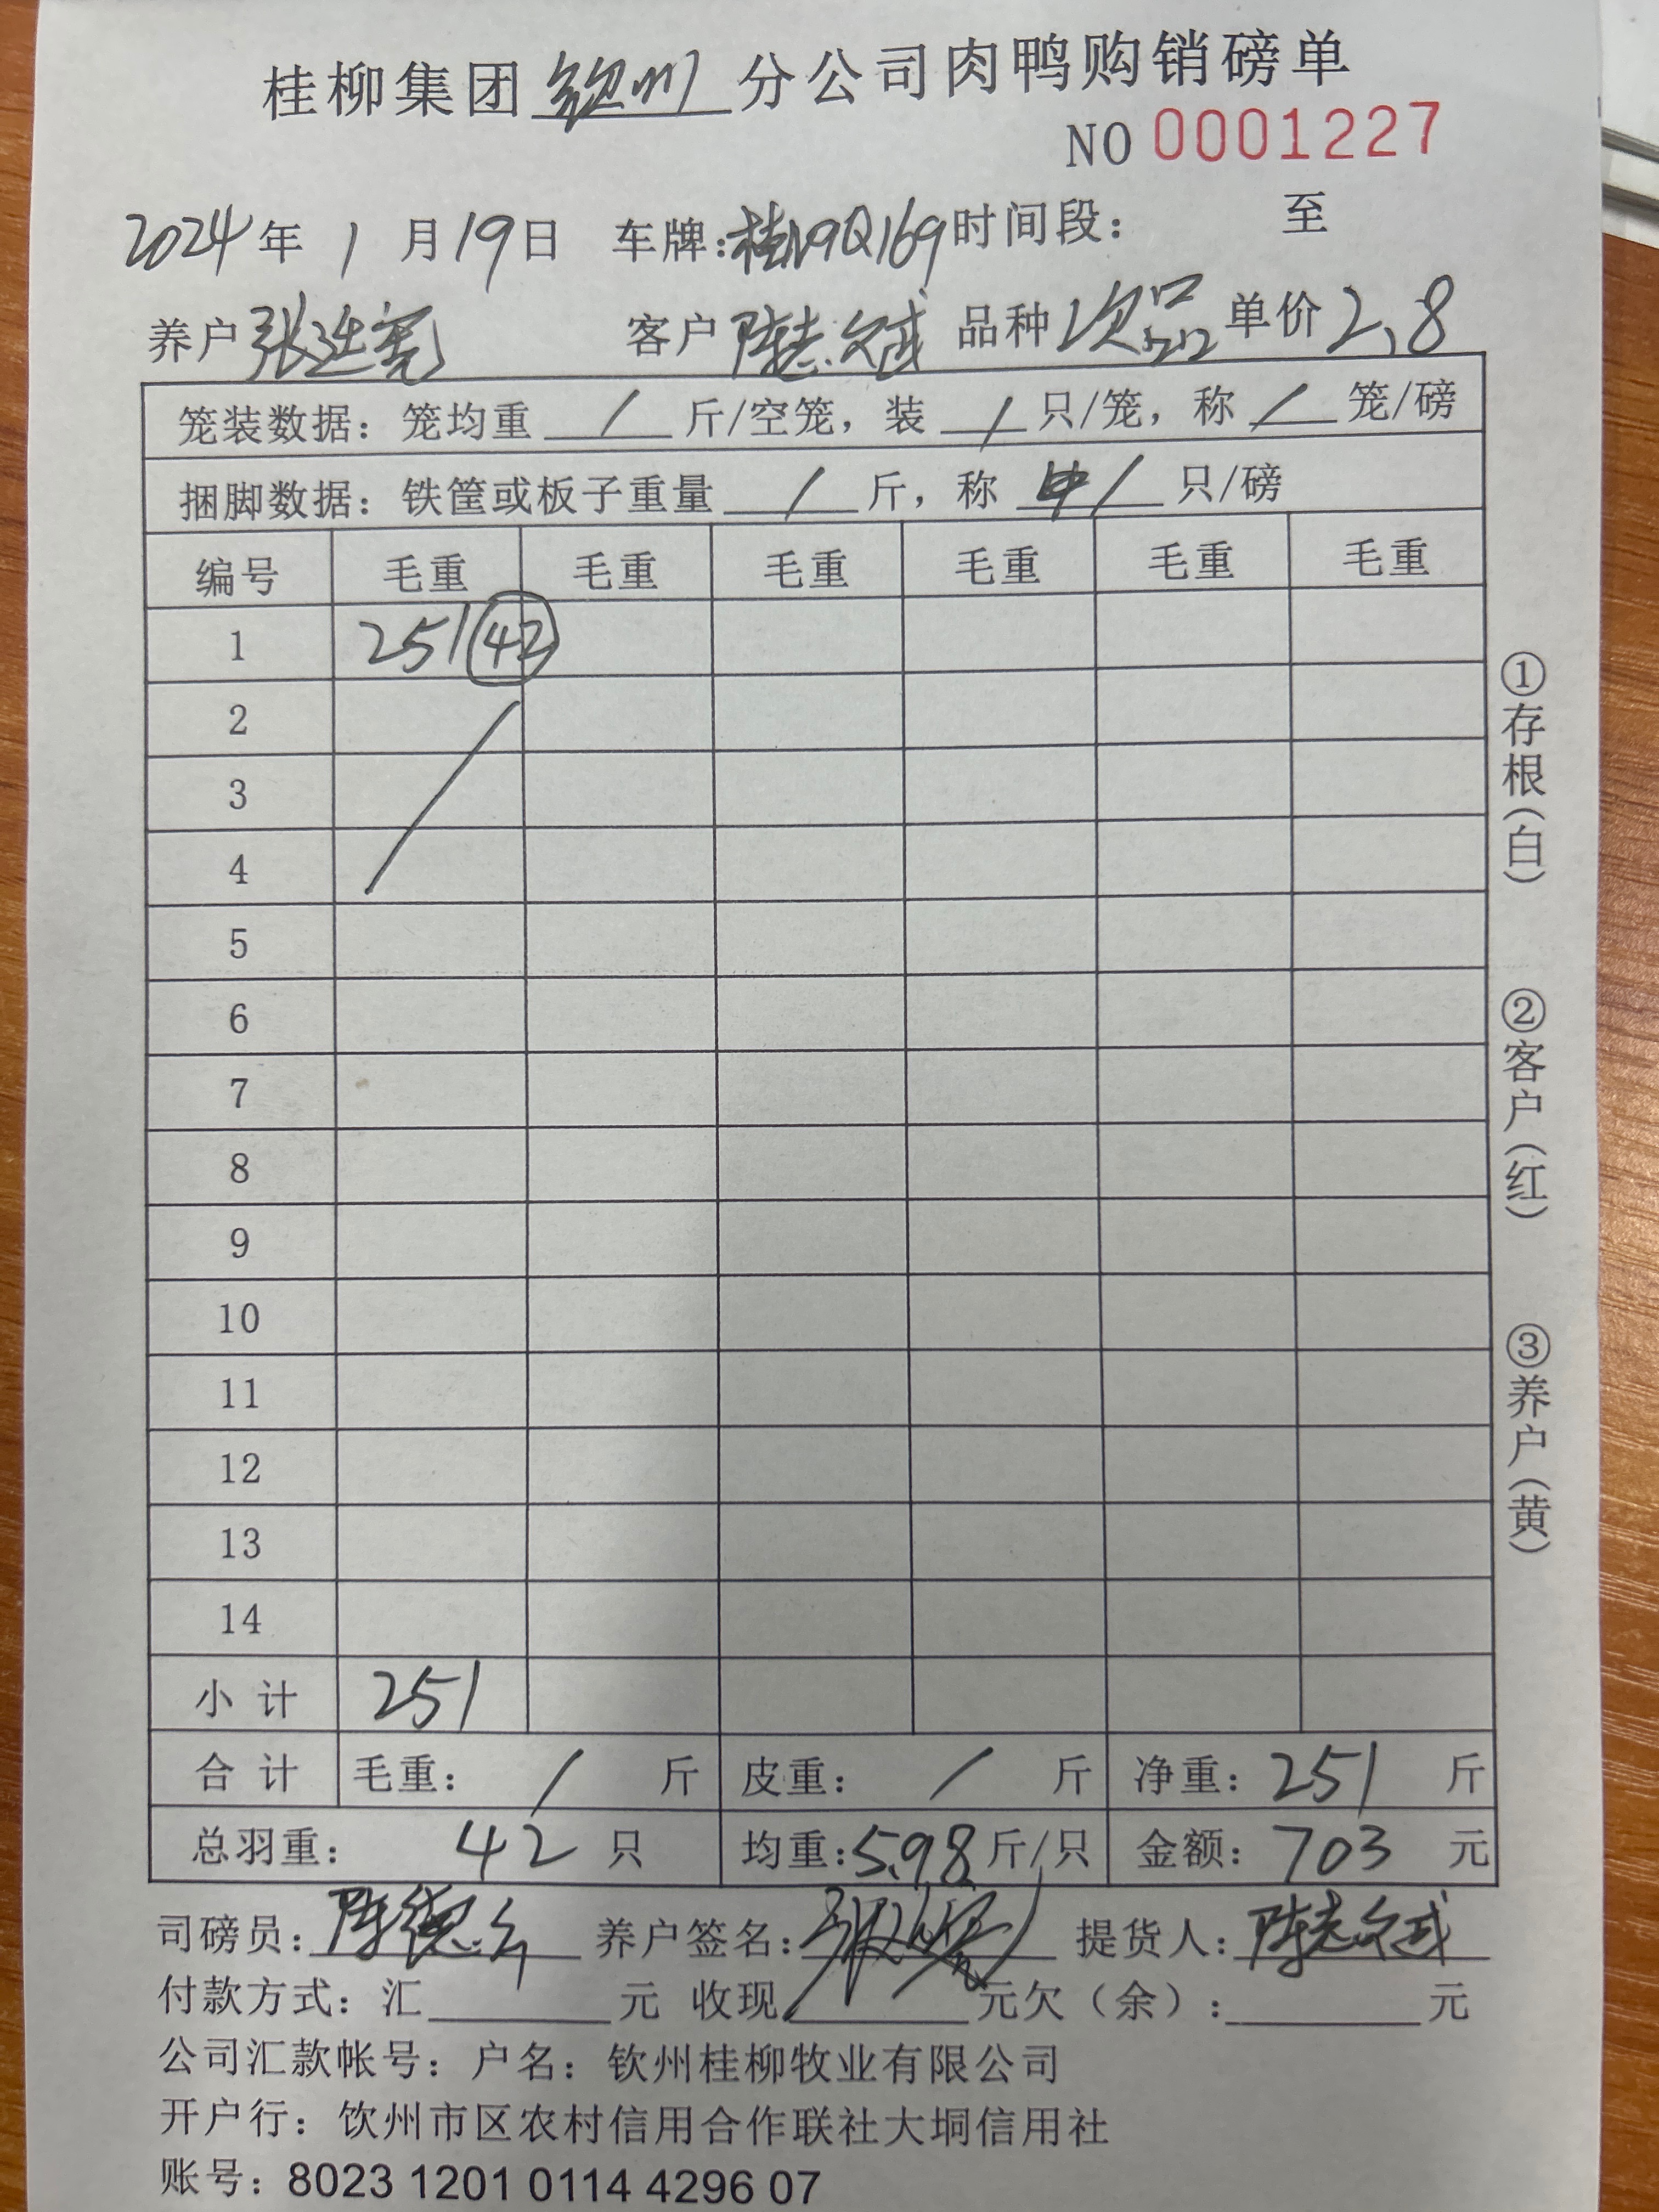 桂柳集团 钦州 分公司肉鸭购销磅单
NO 0001227
2024 年 1 月 19 日 车牌:桂N9Q169 时间段: 至
养户 张 客户 陈志 品种 次品 单价 2.8
笼装数据: 笼均重 / 斤/空笼, 装 / 只/笼, 称 / 笼/磅
捆脚数据: 铁筐或板子重量 / 斤, 称 / 只/磅
编号 毛重 毛重 毛重 毛重 毛重 毛重
1 251 42
2
3
4
5
6
7
8
9
10
11
12
13
14
小计 251
合计 毛重: / 斤 皮重: / 斤 净重: 251 斤
总羽重: 42 只 均重: 5.98 斤/只 金额: 703 元
司磅员: 陈德 养户签名: 提货人: 陈志
付款方式: 汇 元 收现 元欠(余): 元
公司汇款帐号: 户名: 钦州桂柳牧业有限公司
开户行: 饮州市区农村信用合作联社大垌信用社
账号: 8023 1201 0114 4296 07
①存根(白)
②客户(红)
③养户(黄)